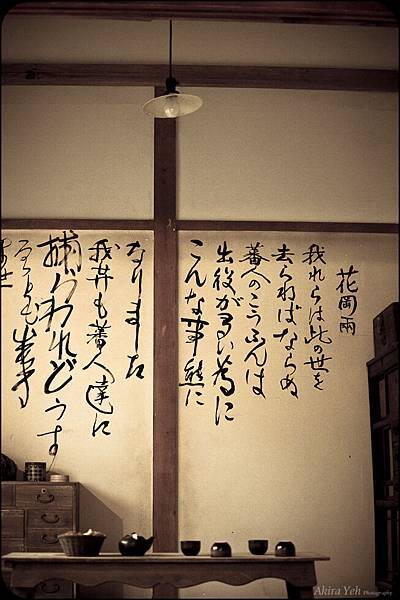 花岡両
我れらは此の世を
去らねばならぬ
蕃人のこうふんは
出役が多い為に
こんな事件に
なりました
我等も蕃人達に
捕らわれどうす
ることも出来
Akira Yeh Photography